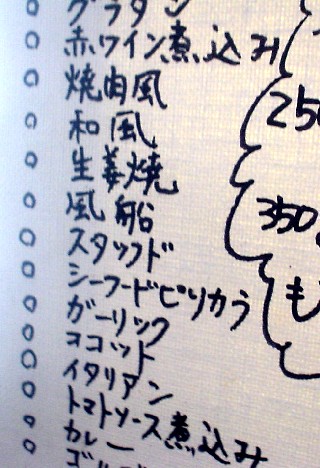 グラタン
赤ワイン煮込み
焼肉風
250
和風
生姜焼
風船
350
スタッフド
シーフードピリカラ
も
ガーリック
ココット
イタリアン
トマトソース煮込み
カレー